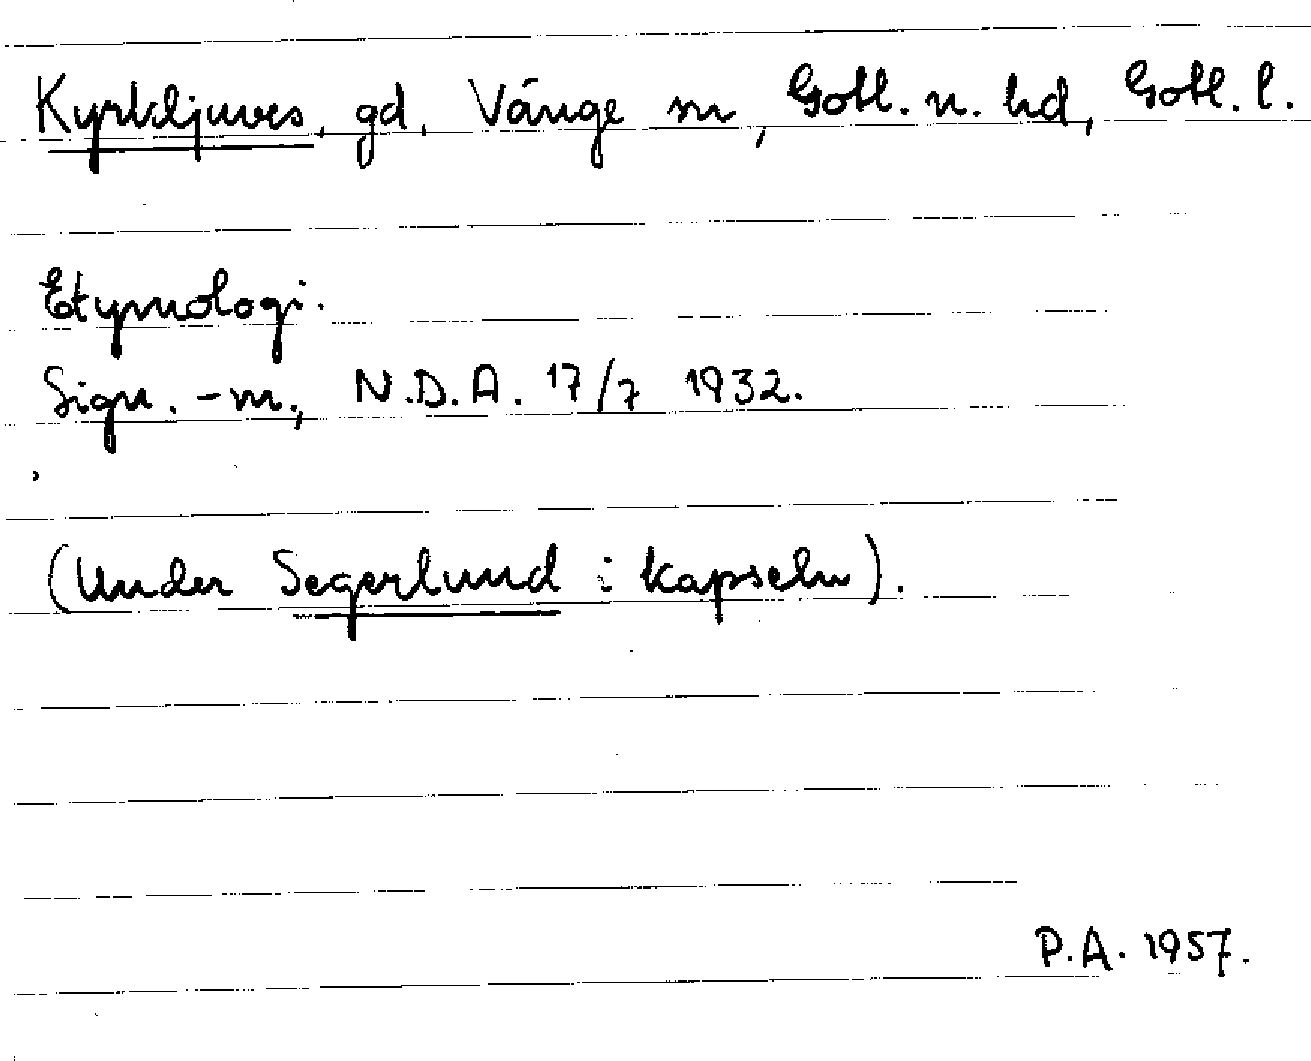 Kyrkljuves, gd, Vänge sn, Gotl. n. hd, Gotl. l.
Etymologi.
Sign. -m., N.D.A. 17/7 1932.
(Under Segerlund i kapseln).
P.A. 1957.